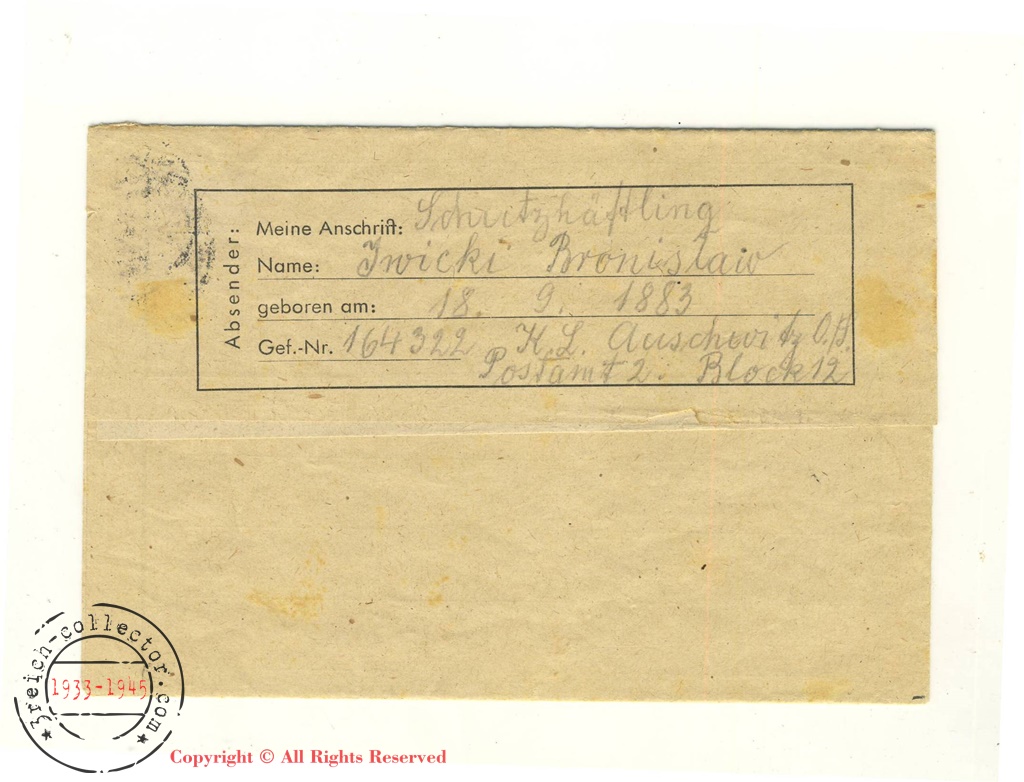 Absender:
Meine Anschrift: Schutzhäftling
Name: Iwicki Bronislaw
geboren am: 18. 9. 1883
Gef.-Nr. 164322 K. L. Auschwitz O./S.
Postamt 2. Block 12
3reich-collector.com
1933-1945
Copyright © All Rights Reserved